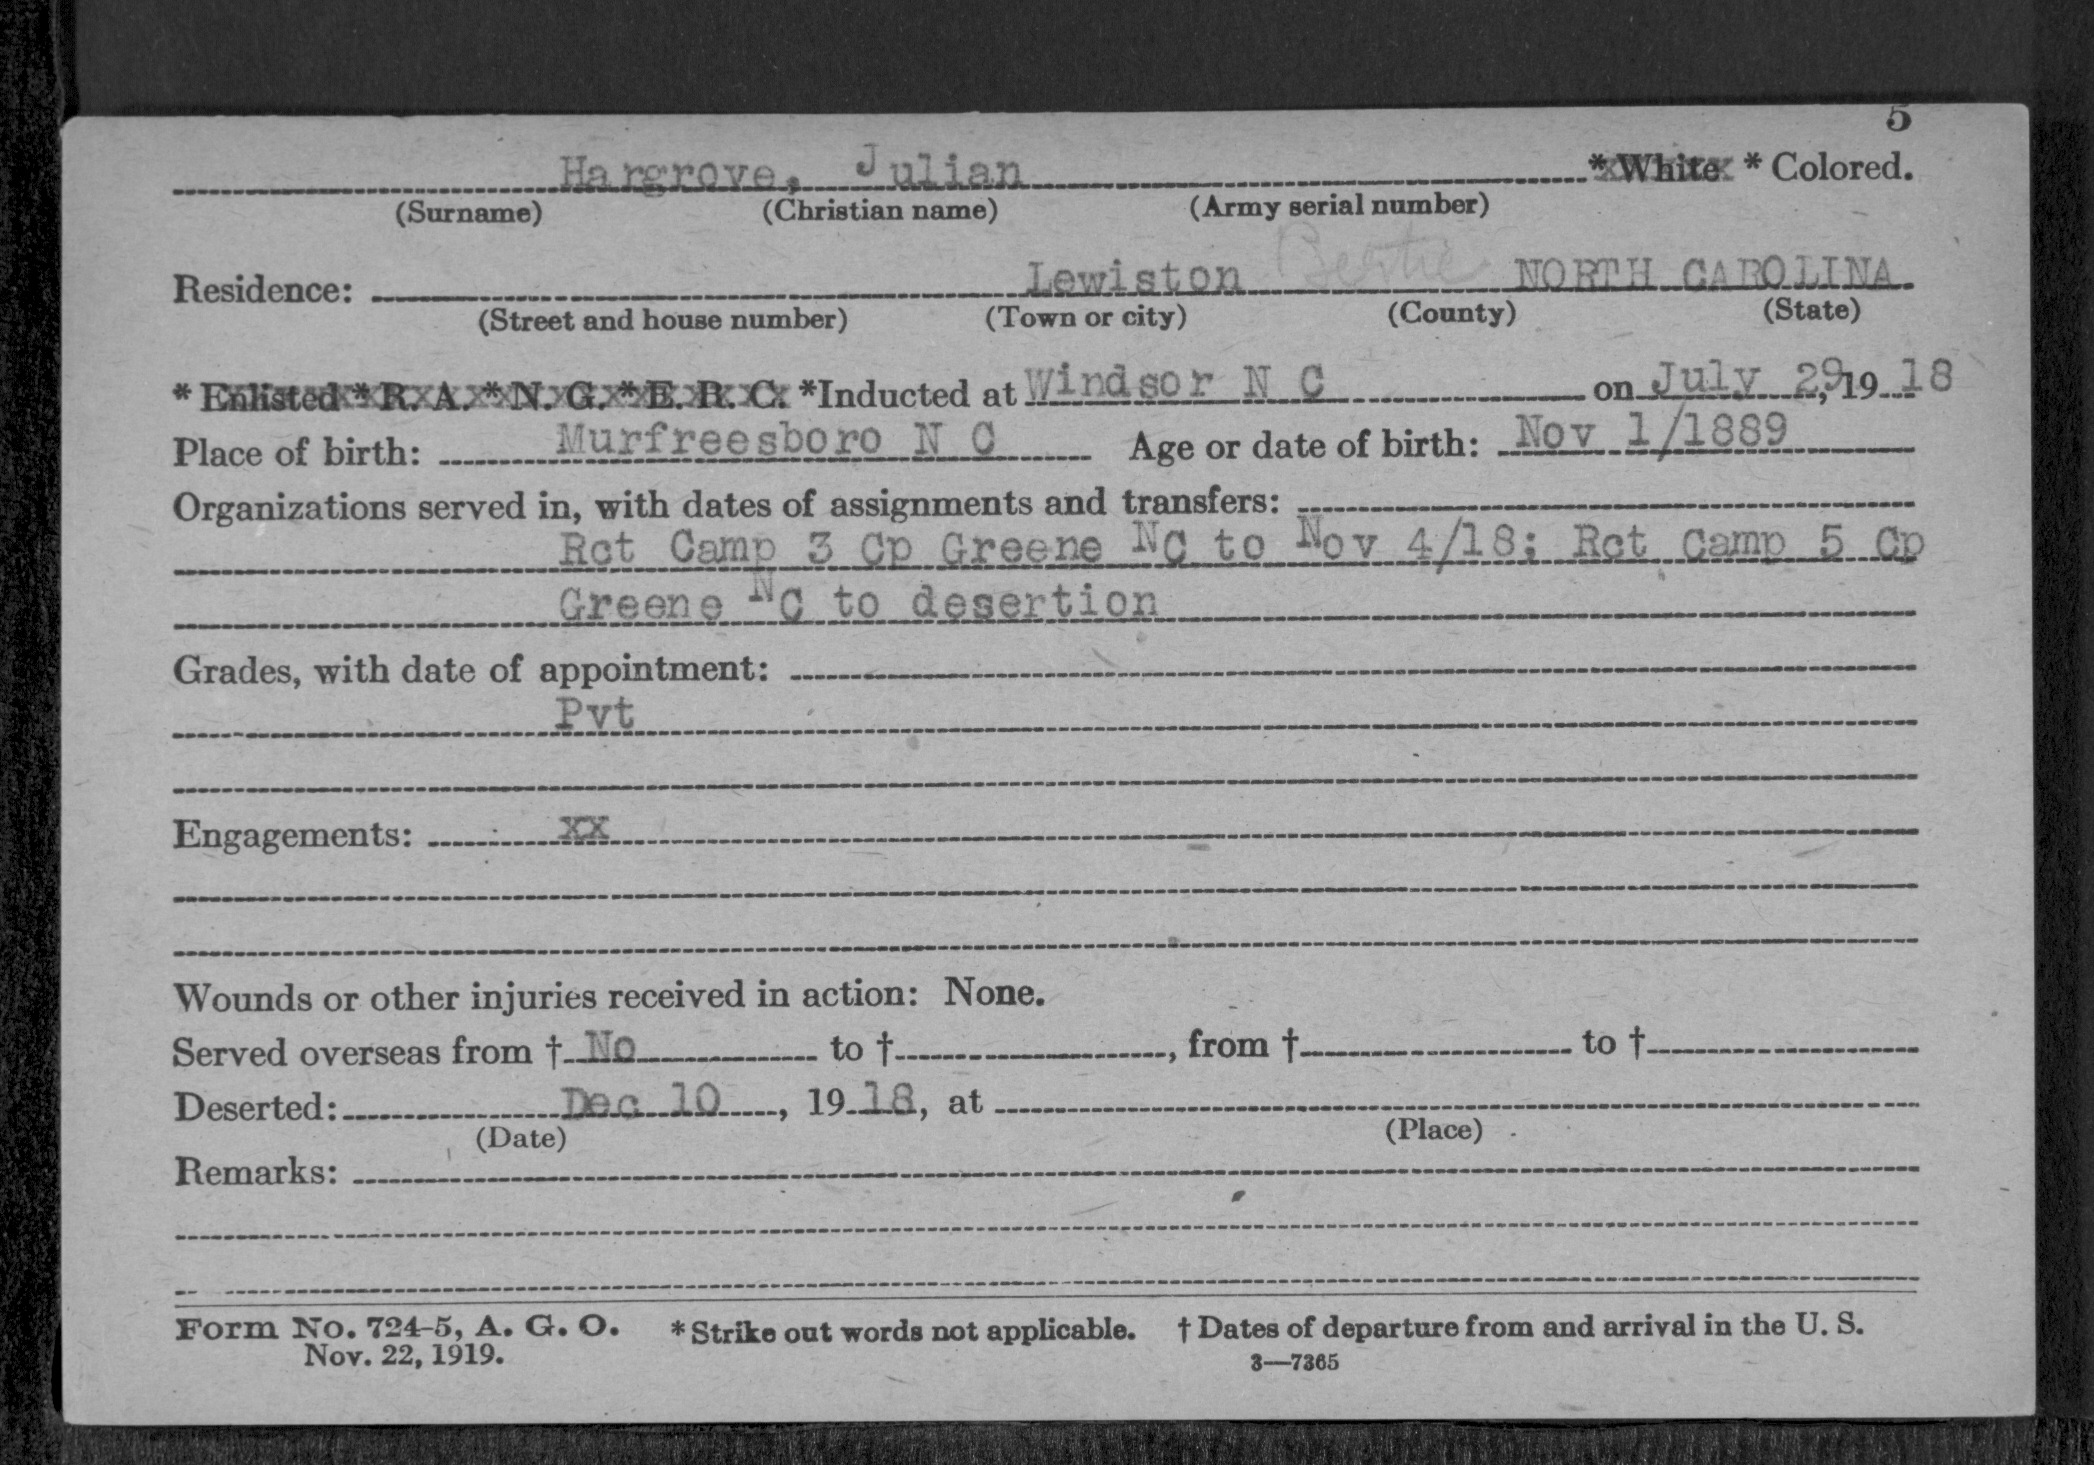 5
Hargrove, Julian *White *Colored.
(Surname) (Christian name) (Army serial number)
Residence: Lewiston Bertie NORTH CAROLINA
(Street and house number) (Town or city) (County) (State)
*Enlisted *R. A. *N. G. *E. R. C. *Inducted at Windsor N C on July 29, 1918
Place of birth: Murfreesboro N C Age or date of birth: Nov 1/1889
Organizations served in, with dates of assignments and transfers:
Rct Camp 3 Cp Greene NC to Nov 4/18; Rct Camp 5 Cp
Greene NC to desertion
Grades, with date of appointment:
Pvt
Engagements: xx
Wounds or other injuries received in action: None.
Served overseas from † No to †, from † to †
Deserted: Dec 10, 1918, at
(Date) (Place)
Remarks:
Form No. 724-5, A. G. O. *Strike out words not applicable. † Dates of departure from and arrival in the U. S.
Nov. 22, 1919. 3—7365